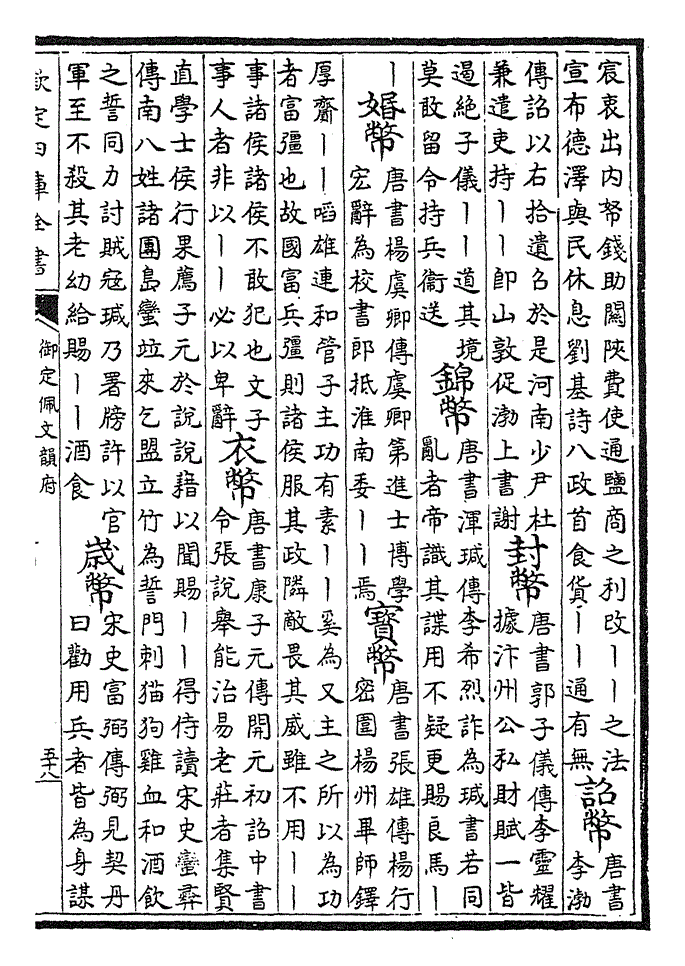 宸衷出内帑錢助關陜費使通鹽商之利改丨丨之法
宣布德澤與民休息劉基詩八政首食貨丨丨通有無
詔幣
唐書
李渤
傳詔以右拾遺召於是河南少尹杜
兼遣吏持丨丨卽山敦促渤上書謝
封幣
唐書郭子儀傳李靈耀
據汴州公私財賦一皆
遏絶子儀丨丨道其境
莫敢留令持兵衞送
錦幣
唐書渾瑊傳李希烈詐為瑊書若同
亂者帝識其諜用不疑更賜良馬丨
丨
婚幣
唐書楊虞卿傳虞卿第進士博學
宏辭為校書郎抵淮南委丨丨焉
寶幣
唐書張雄傳楊行
密圍楊州畢師鐸
厚齎丨丨啗雄連和管子主功有素丨丨奚為又主之所以為功
者富彊也故國富兵彊則諸侯服其政隣敵畏其威雖不用丨丨
事諸侯諸侯不敢犯也文子
事人者非以丨丨必以卑辭
衣幣
唐書康子元傳開元初詔中書
令張說舉能治易老莊者集賢
直學士侯行果薦子元於說說藉以聞賜丨丨得侍讀宋史蠻彝
傳南八姓諸團島蠻竝來乞盟立竹為誓門刺猫狗雞血和酒飲
之誓同力討賊冦瑊乃署牓許以官
軍至不殺其老幼給賜丨丨酒食
歲幣
宋史富弼傳弼見契丹
曰勸用兵者皆為身謀
欽定四庫全書
御定佩文韻府
五十八